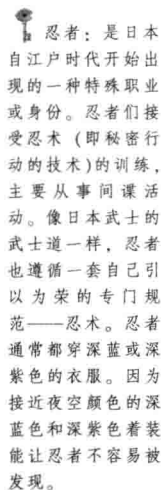 忍者：是日本
自江户时代开始出
现的一种特殊职业
或身份。忍者们接
受忍术（即秘密行
动的技术)的训练，
主要从事间谍活
动。像日本武士的
武士道一样，忍者
也遵循一套自己引
以为荣的专门规
范——忍术。忍者
通常都穿深蓝或深
紫色的衣服。因为
接近夜空颜色的深
蓝色和深紫色着装
能让忍者不容易被
发现。